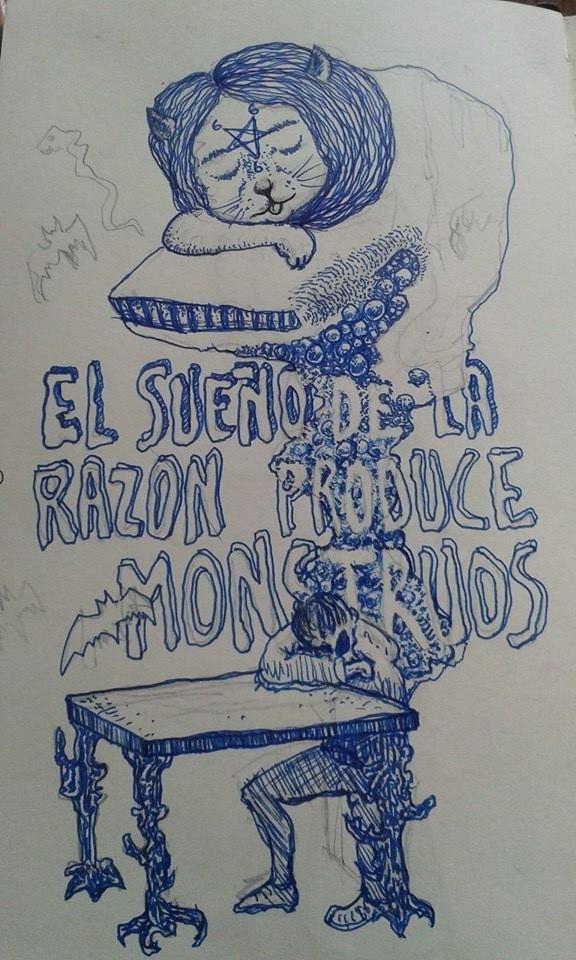 6 6
6
EL SUEÑO DE LA
RAZON PRODUCE
MONSTRUOS